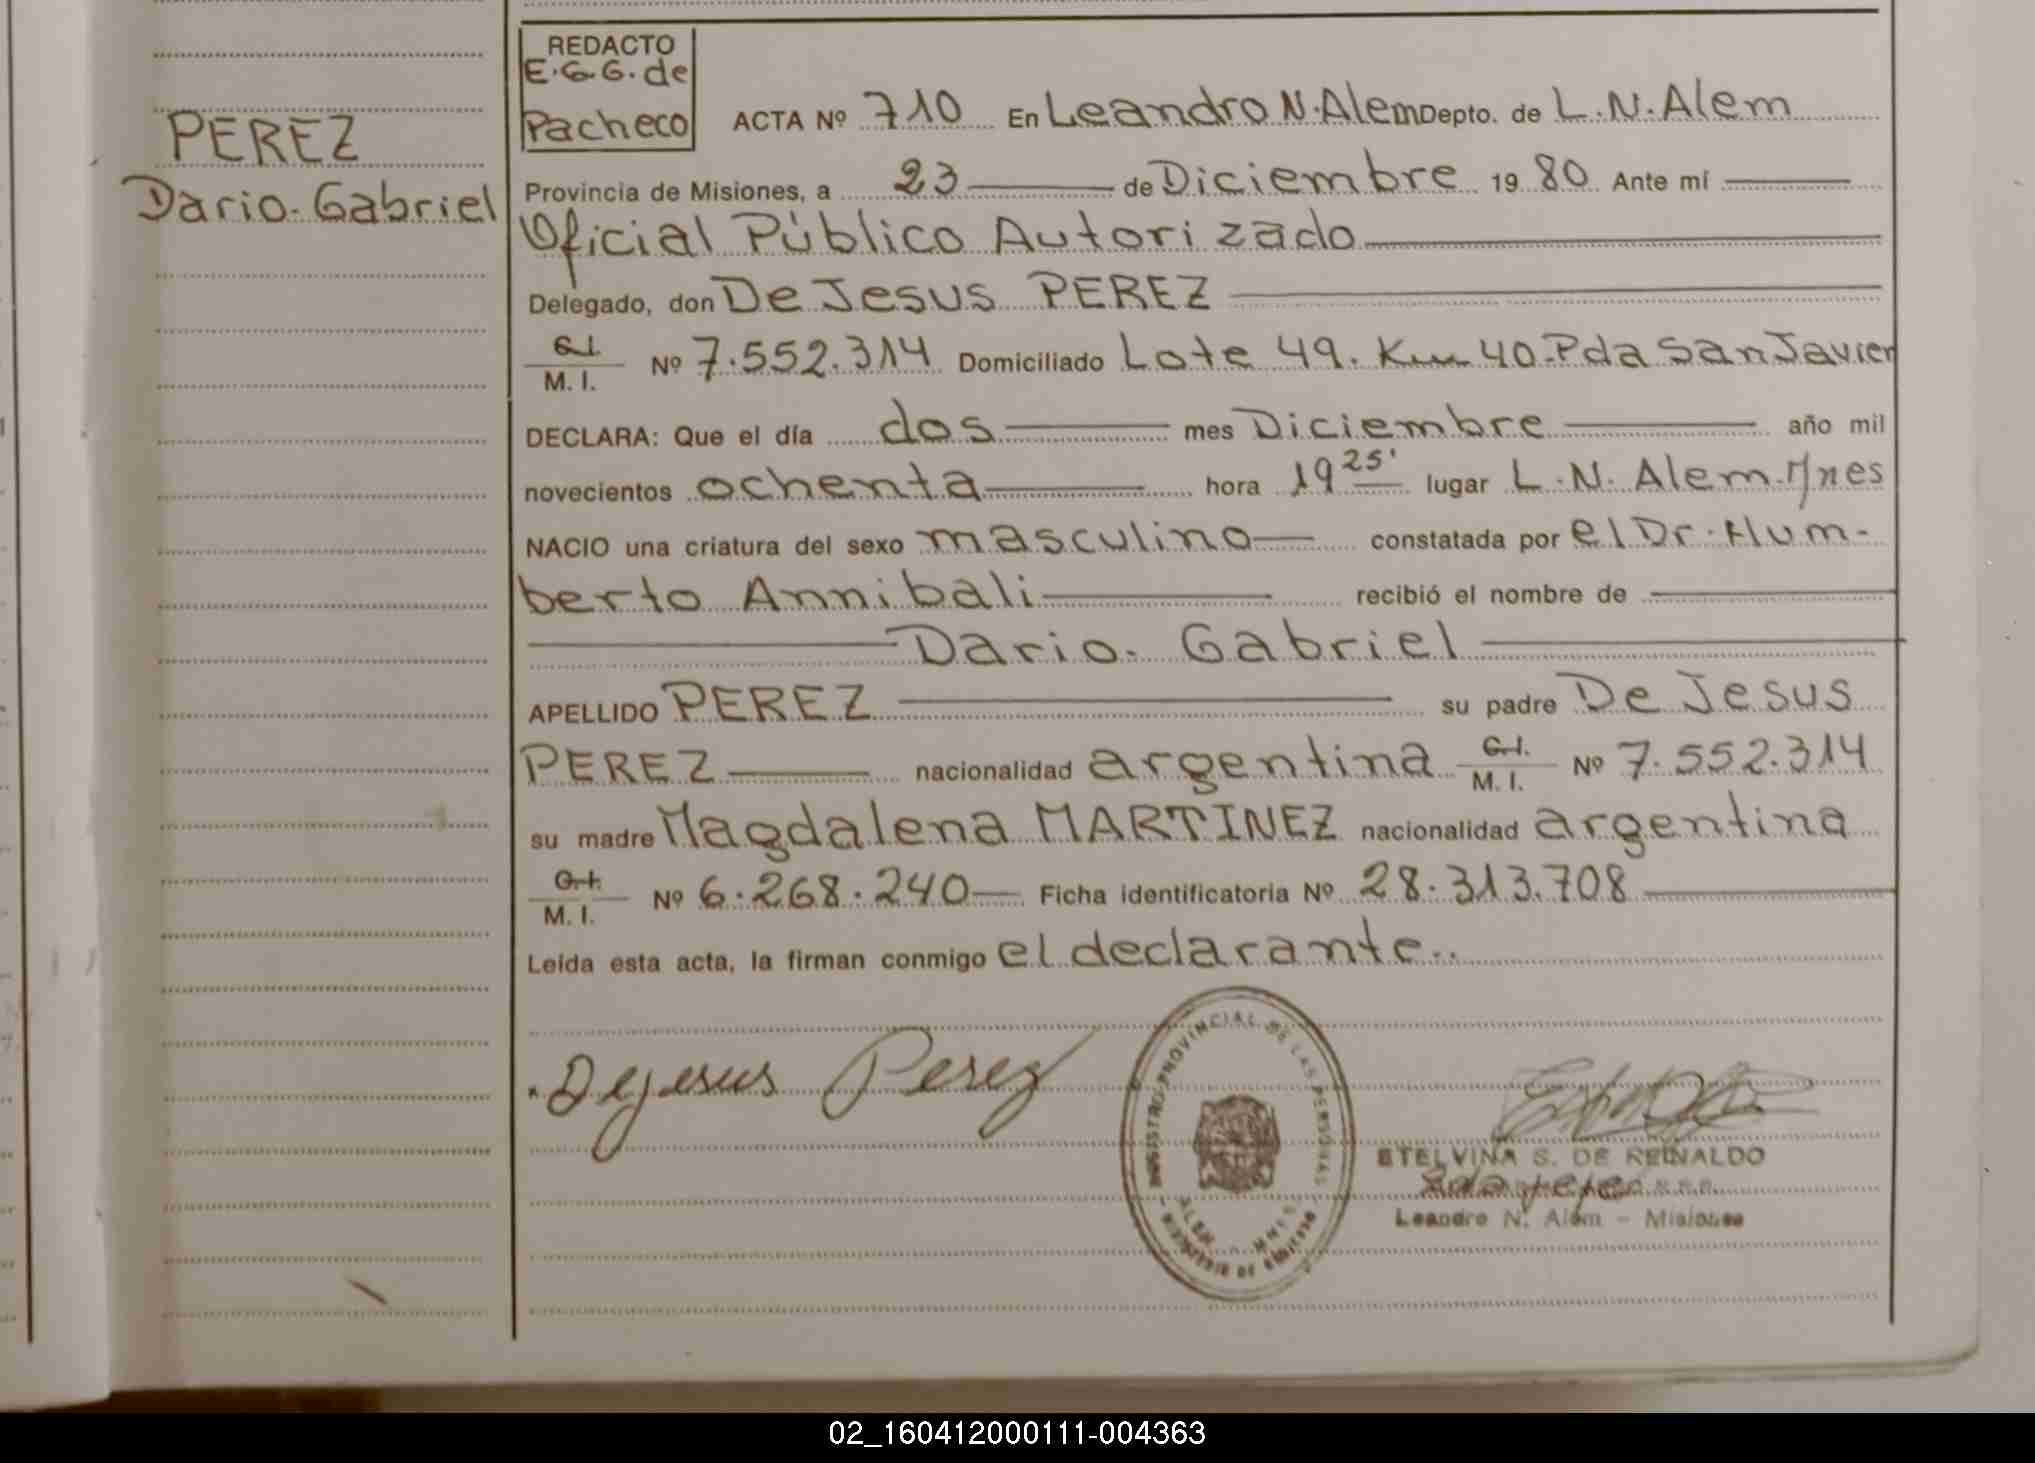 PEREZ
Dario. Gabriel
REDACTO
E.G.G. de
Pacheco
ACTA Nº 710 En Leandro N. Alem Depto. de L. N. Alem
Provincia de Misiones, a 23 de Diciembre 1980 Ante mí
Oficial Público Autorizado
Delegado, don De Jesus PEREZ
C.I.
M. I. Nº 7.552.314 Domiciliado Lote 49. Km 40. Pda San Javier
DECLARA: Que el día dos mes Diciembre año mil
novecientos ochenta hora 19 25' lugar L. N. Alem. Mnes
NACIO una criatura del sexo masculino constatada por el Dr. Hum-
berto Annibali recibió el nombre de
Dario. Gabriel
APELLIDO PEREZ su padre De Jesus
PEREZ nacionalidad argentina C.I. M. I. Nº 7.552.314
su madre Magdalena MARTINEZ nacionalidad argentina
C.I.
M. I. Nº 6.268.240 Ficha identificatoria Nº 28.313.708
Leída esta acta, la firman conmigo el declarante..
Dejesus Perez
REGISTRO PROVINCIAL DE LAS PERSONAS
ALEM - MNES
MINISTERIO DE GOBIERNO
ESTELVINA S. DE REINALDO
Leandro N. Alem - Misiones
02_160412000111-004363